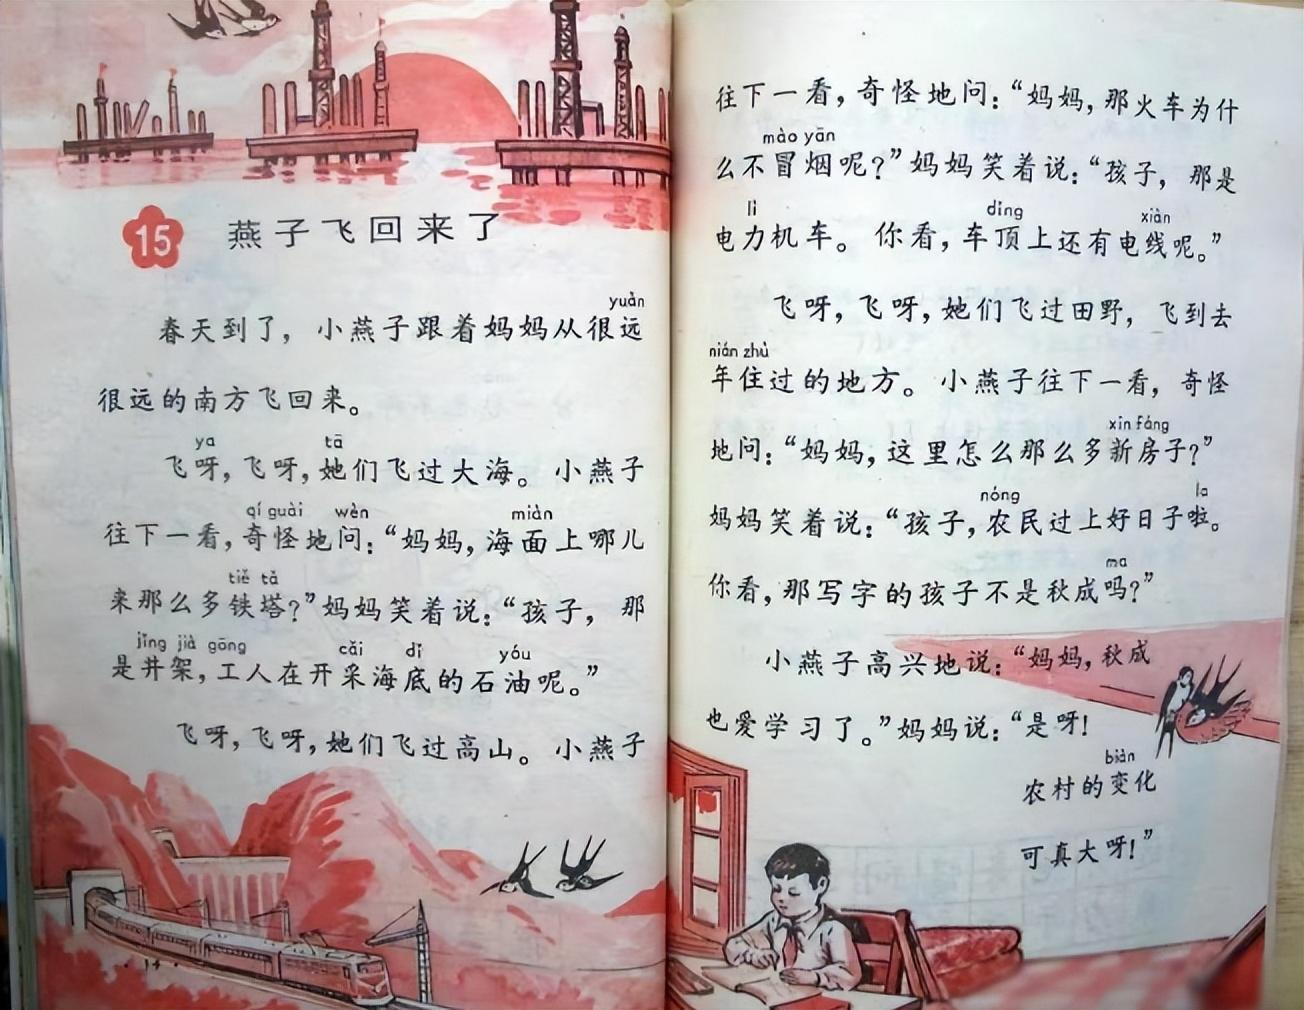 15 燕子飞回来了
yuǎn
春天到了，小燕子跟着妈妈从很远
很远的南方飞回来。
ya tā
飞呀，飞呀，她们飞过大海。小燕子
qí guài wèn miàn
往下一看，奇怪地问：“妈妈，海面上哪儿
tiě tǎ
来那么多铁塔？”妈妈笑着说：“孩子，那
jǐng jià gōng cǎi dǐ yóu
是井架，工人在开采海底的石油呢。”
飞呀，飞呀，她们飞过高山。小燕子
14
往下一看，奇怪地问：“妈妈，那火车为什
mào yān
么不冒烟呢？”妈妈笑着说：“孩子，那是
lì dǐng xiàn
电力机车。你看，车顶上还有电线呢。”
飞呀，飞呀，她们飞过田野，飞到去
nián zhù
年住过的地方。小燕子往下一看，奇怪
xīn fáng
地问：“妈妈，这里怎么那么多新房子？”
nóng la
妈妈笑着说：“孩子，农民过上好日子啦。
ma
你看，那写字的孩子不是秋成吗？”
小燕子高兴地说：“妈妈，秋成
也爱学习了。”妈妈说：“是呀！
biàn
农村的变化
可真大呀！”